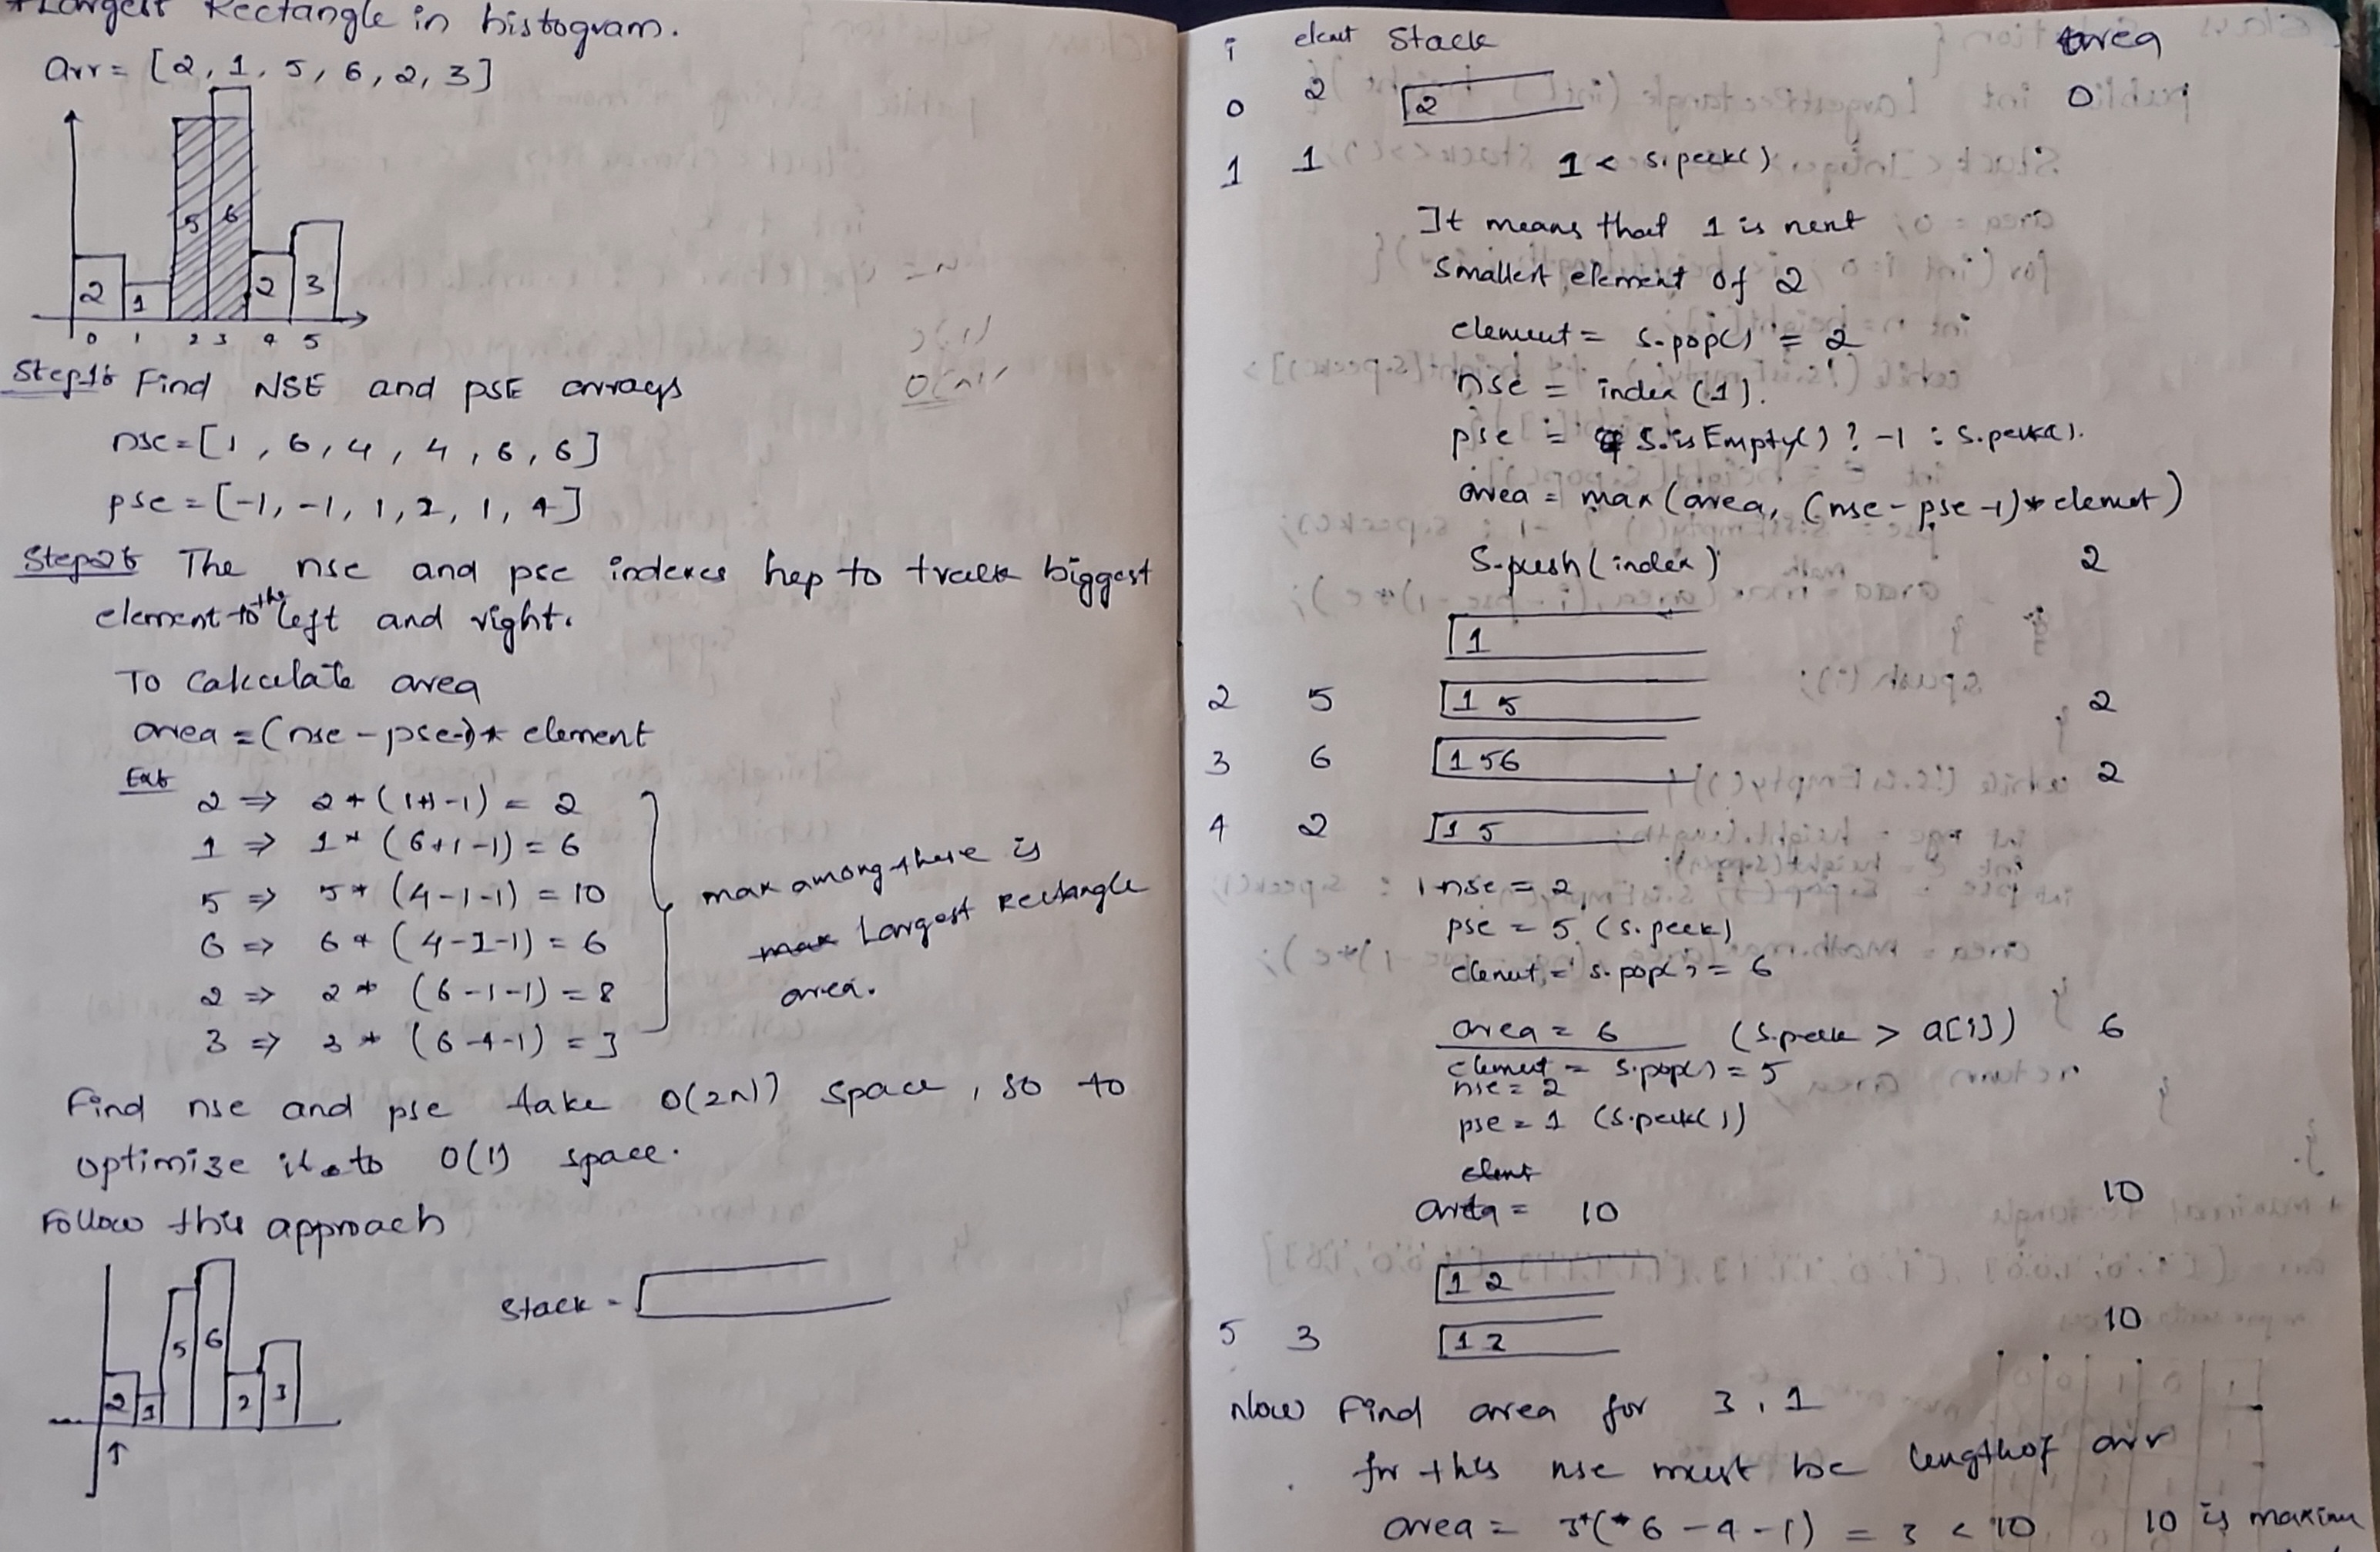 * Largest Rectangle in histogram.
arr = [2, 1, 5, 6, 2, 3]
5 6
2 1 2 3
0 1 2 3 4 5
Step1: Find NSE and PSE arrays
nse = [1, 6, 4, 4, 6, 6]
pse = [-1, -1, 1, 2, 1, 4]
Step2: The nse and pse indexes hep to track biggest
element to the left and right.
To Calculate area
area = (nse - pse-1) * element
Ex:
2 => 2 * (1+1-1) = 2
1 => 1 * (6+1-1) = 6
5 => 5 * (4-1-1) = 10
6 => 6 * (4-2-1) = 6
2 => 2 * (6-1-1) = 8
3 => 3 * (6-4-1) = 3
max among these is
Largest Rectangle
area.
Find nse and pse take O(2N) space, so to
optimize it to O(1) space.
Follow this approach
Stack =
5 6
2 1 2 3
i elemt Stack area
0 2 2 0
1 1 1 < s.peek()
It means that 1 is next
smallest element of 2
element = s.pop() = 2
nse = index (1).
pse = s.isEmpty() ? -1 : s.peek().
area = max(area, (nse - pse -1) * elemet)
S.push(index) 2
1
2 5 1 5 2
3 6 1 5 6 2
4 2 1 5
nse = 2
pse = 5 (s.peek)
elemet = s.pop() = 6
area = 6 (s.peek > a[i]) 6
element = s.pop() = 5
nse = 2
pse = 1 (s.peek())
area = 10 10
1 2
5 3 1 2 10
Now Find area for 3, 1
for this nse must be length of arr
area = 3*(*6 - 4 - 1) = 3 < 10 10 is maximu